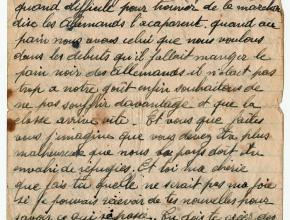 quand difficile pour honneur de la
dire les Allemands l'acaparent, quand au
pain nous avons celui que nous voulons
dans les debuts qu'il fallait manger le
pain noir des Allemands il n'etait pas
trop a notre goût enfin souhaitons de
ne pas souffrir davantage et que la
classe arrive vite. Et vous que faites
vous j'imagine que vous devez être plus
malheureux que nous le pays doit être
envahi de réfugiés. Et toi ma chérie
que fais tu quelle ne serait pas ma joie
si je pouvais recevoir de tes nouvelles pour
savoir ce qui se passe.